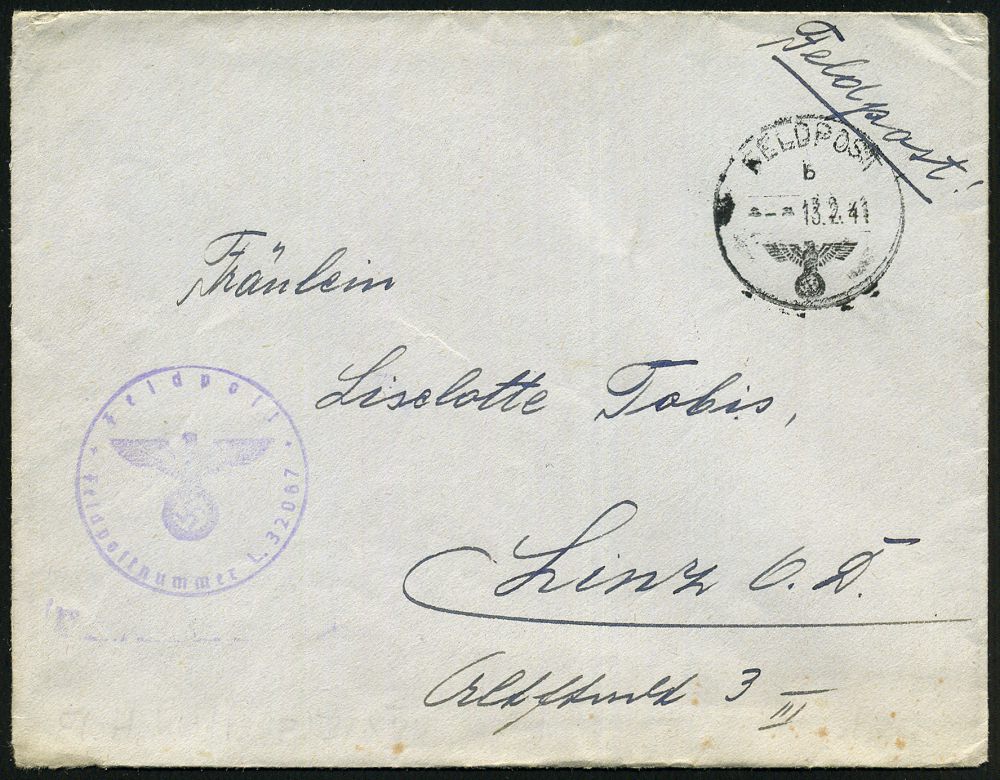 Feldpost!
FELDPOST
b
13.2.41
Fräulein
Liselotte Tobis,
Feldpost
Feldpostnummer L. 32067
Linz O.D.
3 III